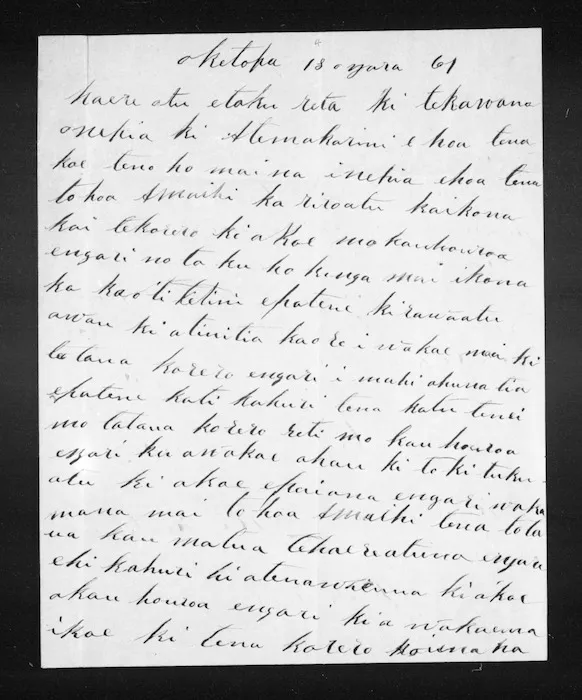 oketopa 13 ngara 61
haere atu etaku reta ki tekawana
onepia ki Atemakarini e hoa tena
koe teno ho mai na inepia ehoa tena
to hoa Amaihi ka riroatu kaikona
kai tekorero ki a koe mo kauhouroa
engari no ta ku ho kinga mai ikona
ka kaoti ketini epatene ki rawaatu
awau ki atinitia kaore i wakae mai ki
tatana korero engari i mahi ahuna tia
epatene kati kahuri tena katu tenei
mo tatana korero reti mo kau houroa
engari ku awakae ahau ki to ki tuku
atu ki akoe epaiana engari waka
mana mai to hoa Amaihi tena tota
ua kau matua tehaereatuna
ehi kahuri ki atenawhenua ki akoe
akau houroa engari kia wakaewa
ikoe ki tena korero